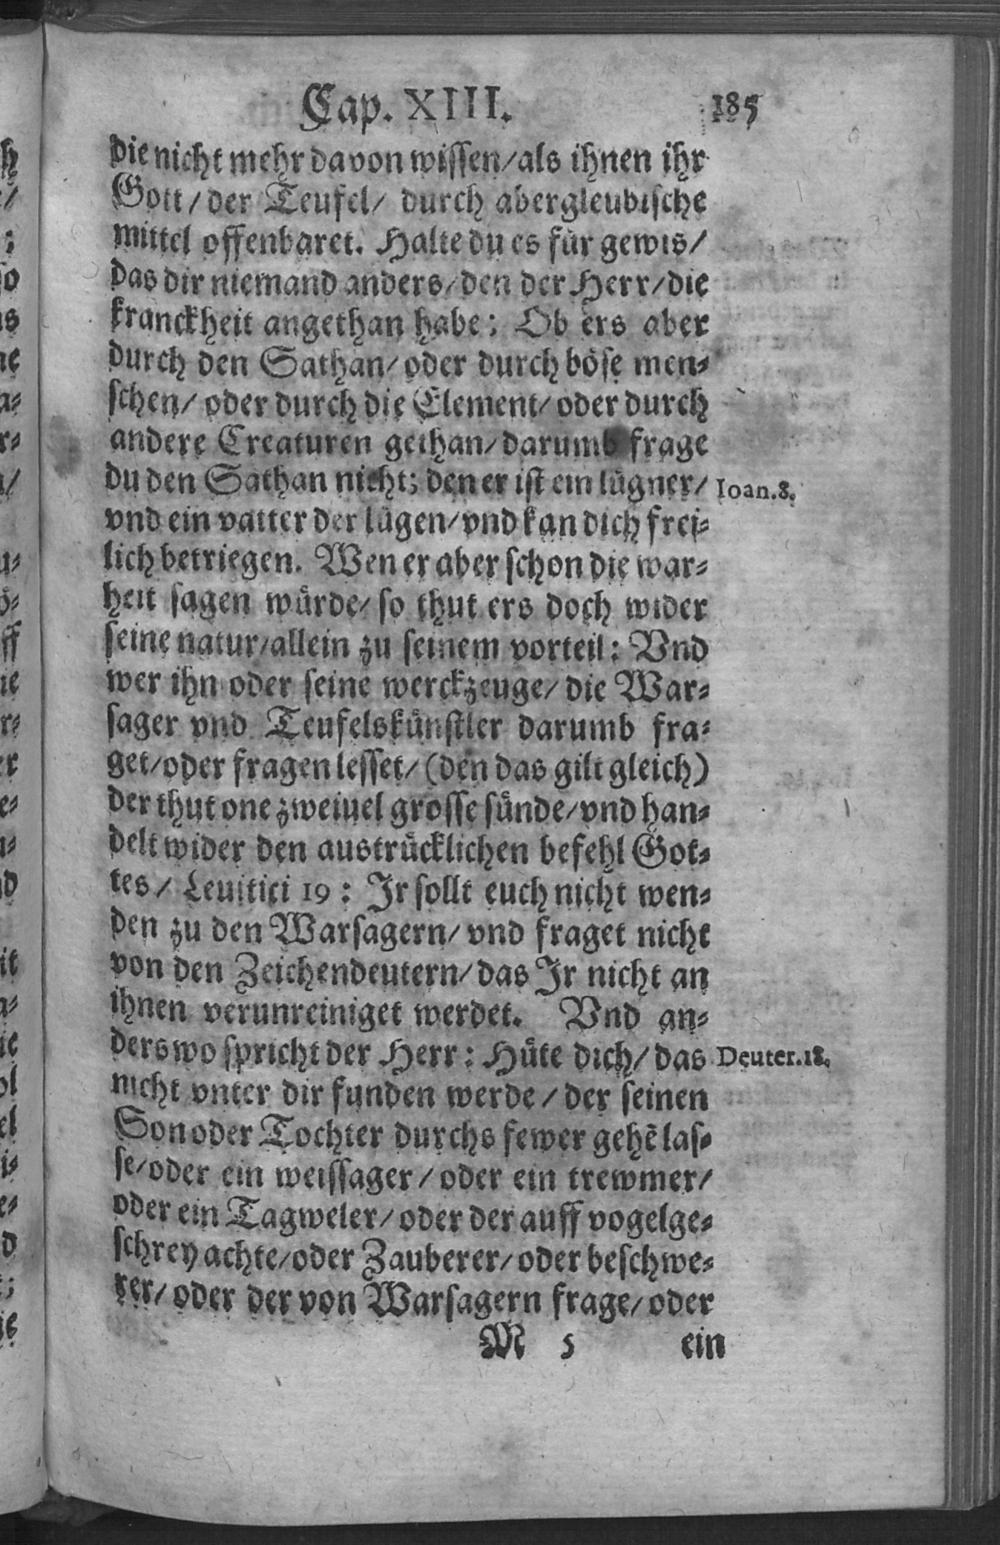 Cap. XIII. 185
die nicht mehr davon wissen/als ihnen ihr
Gott/der Teufel/ durch abergleubische
mittel offenbaret. Halte du es für gewis/
das dir niemand anders/den der Herr/die
kranckheit angethan habe: Ob ers aber
durch den Sathan/oder durch böse men⸗
schen/ oder durch die Element/oder durch
andere Creaturen gethan/darumb frage
du den Sathan nicht; den er ist ein lügner/ Ioan.8.
vnd ein vatter der lügen/vnd kan dich frei⸗
lich betriegen. Wen er aber schon die war⸗
heit sagen würde/ so thut ers doch wider
seine natur/allein zu seinem vorteil: Vnd
wer ihn oder seine werckzeuge/ die War⸗
sager vnd Teufelskünstler darumb fra⸗
get/oder fragen lesset/ (den̄ das gilt gleich)
der thut one zweiuel grosse sünde/vnd han⸗
delt wider den austrücklichen befehl Got⸗
tes/ Leuitici 19 : Ir sollt euch nicht wen⸗
den zu den Warsagern/ vnd fraget nicht
von den Zeichendeutern/das Ir nicht an
ihnen verunreiniget werdet. Vnd an⸗
derswo spricht der Herr: Hüte dich/ das Deuter.18.
nicht vnter dir funden werde/der seinen
Son oder Tochter durchs fewer gehē las⸗
se/oder ein weissager/oder ein trewmer/
oder ein Tagweler/oder der auff vogelge⸗
schrey achte/oder Zauberer/oder beschwe⸗
rer/oder der von Warsagern frage/oder
M 5 ein